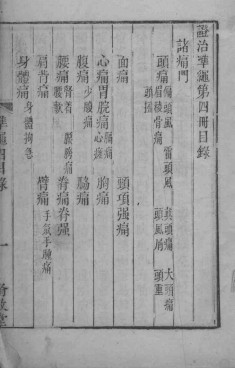 證治準繩第四冊目錄
諸痛門
頭痛 偏頭風 雷頭風 真頭痛 大頭痛
眉棱骨痛 頭風屑 頭重
頭搖
面痛 頭項强痛
心痛胃脘痛 心痛 胸痛
腹痛 少腹痛 脇痛
腰痛 腎著 腰胯痛 脊痛脊强
腰軟
肩背痛 臂痛 手氣手腫痛
身體痛 身體拘急
準繩四目錄
一